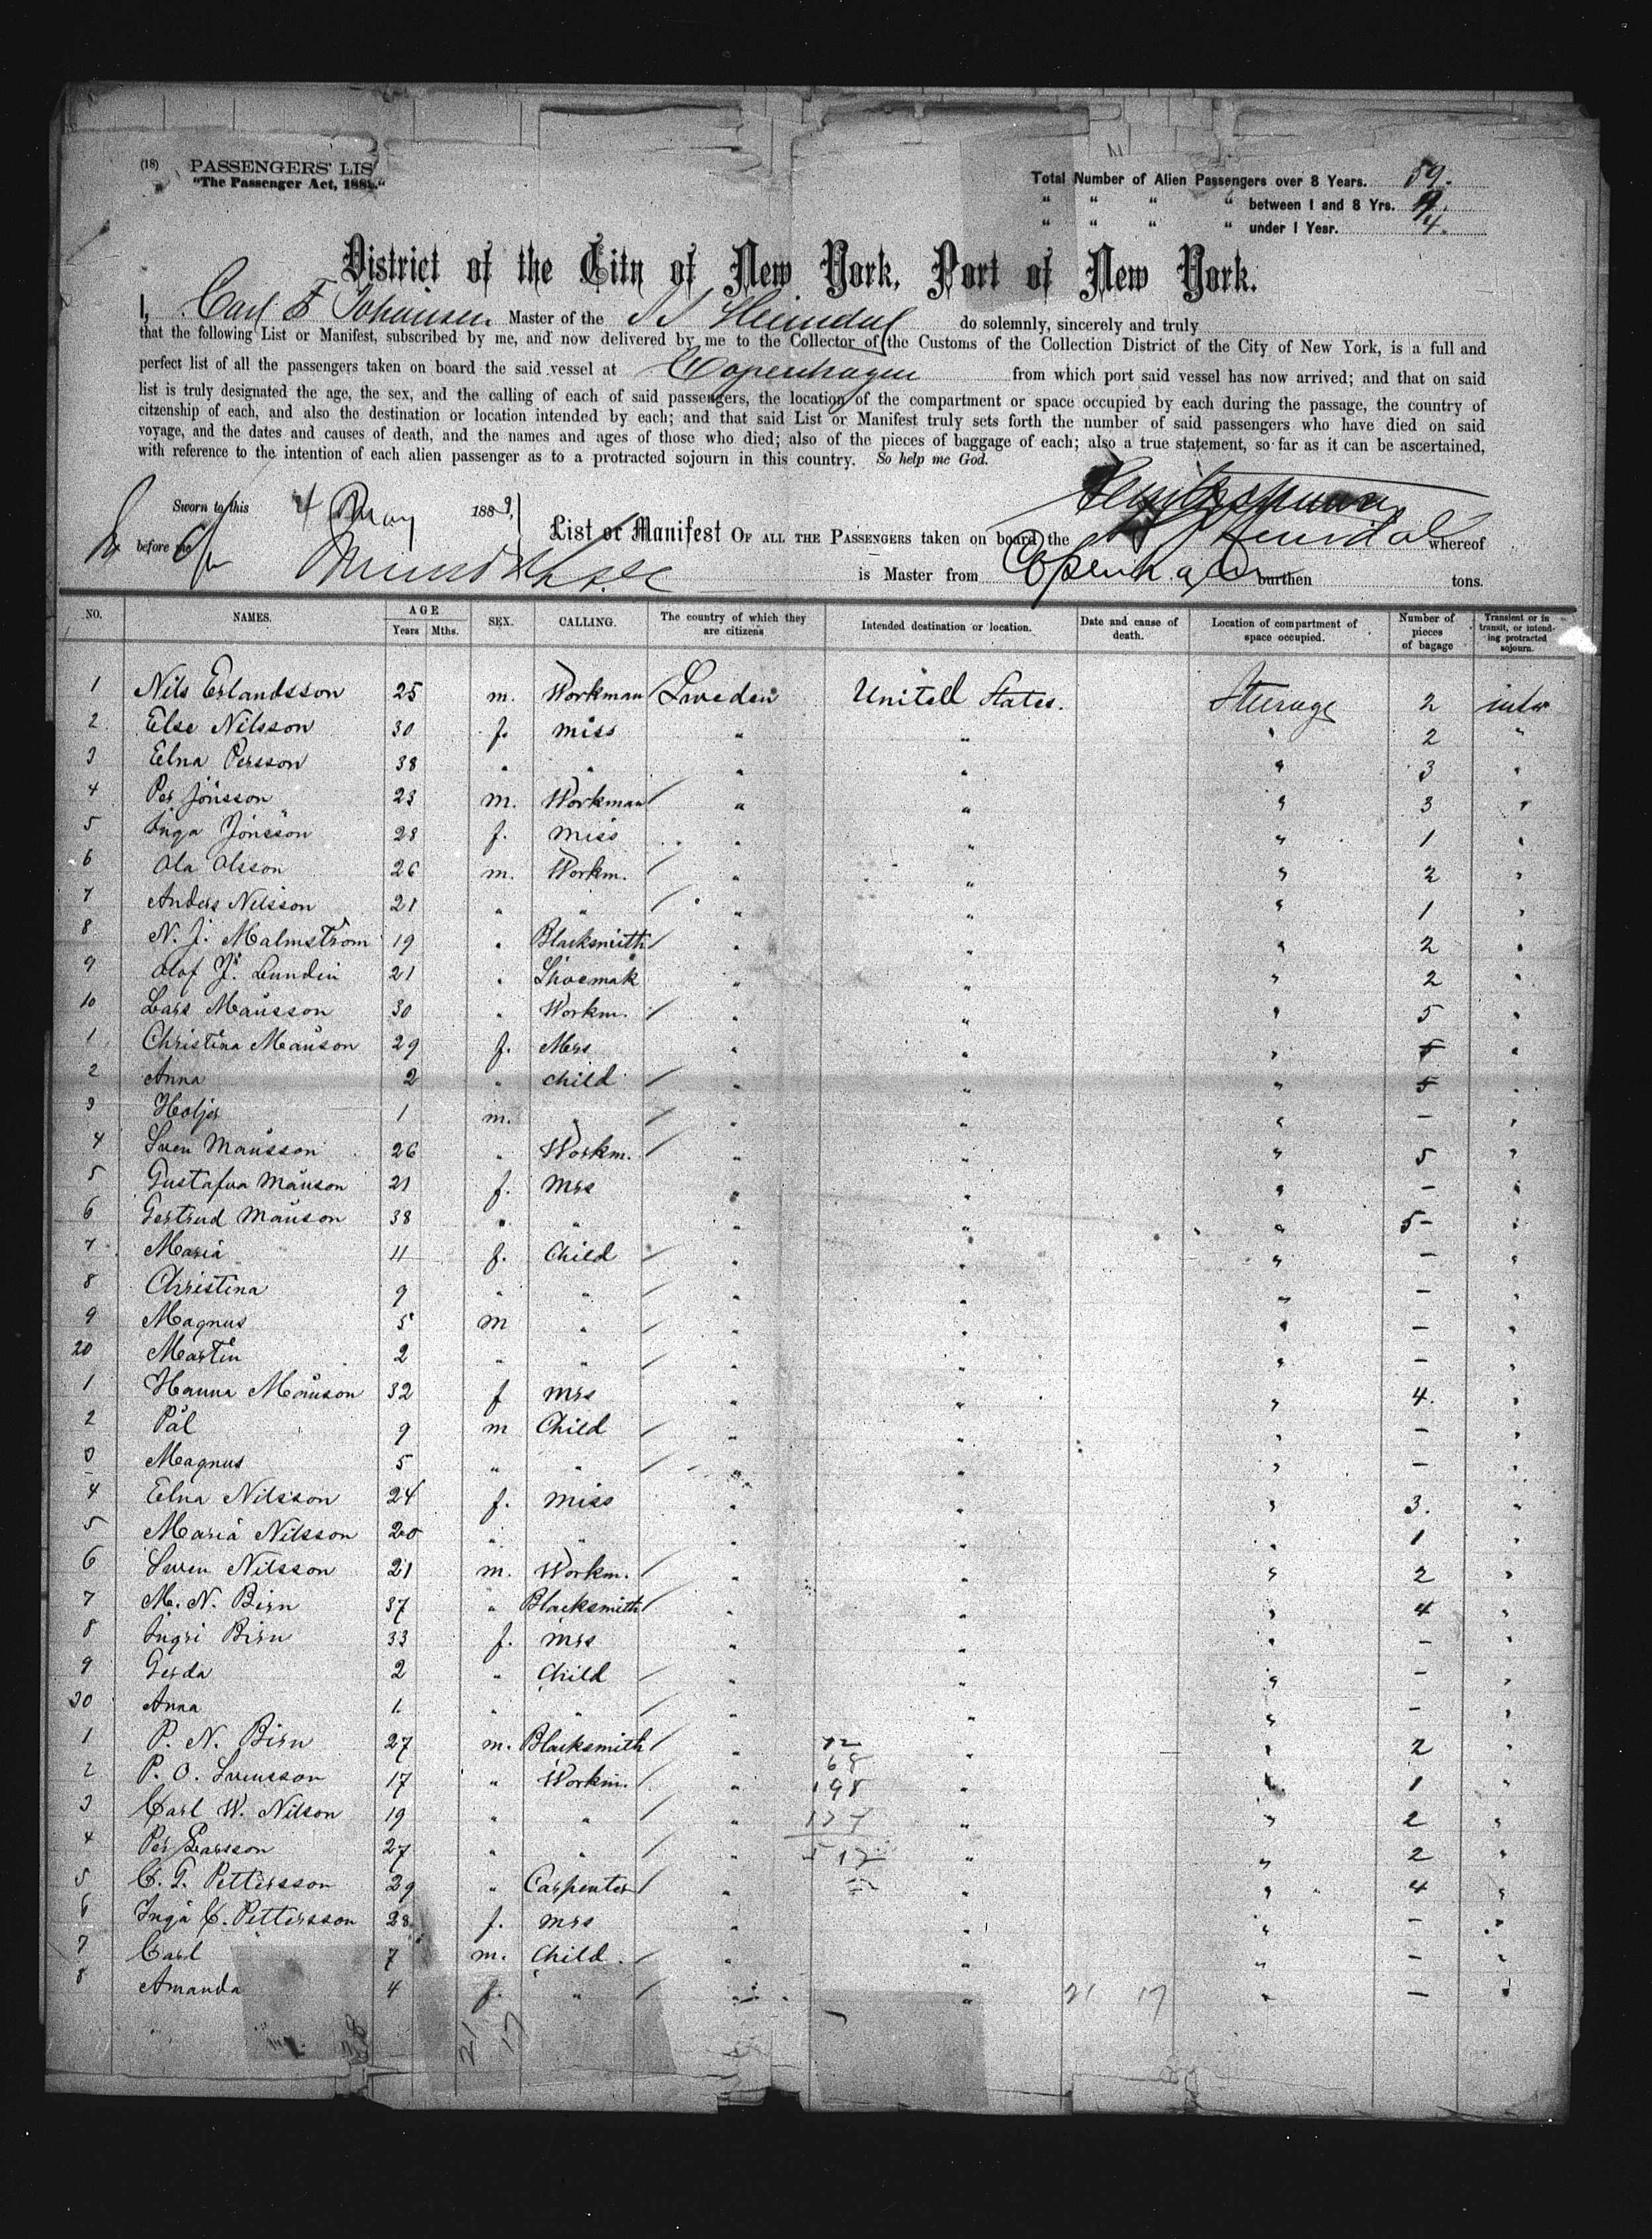 (18) PASSENGERS' LIS
"The Passenger Act, 188
Total Number of Alien Passengers over 8 Years. 59.
" " " " between 1 and 8 Yrs.
" " " " under 1 Year. 4.
District of the City of New York, Port of New York.
I, Carl F Johansen Master of the SS Heimdal do solemnly, sincerely and truly
that the following List or Manifest, subscribed by me, and now delivered by me to the Collector of the Customs of the Collection District of the City of New York, is a full and
perfect list of all the passengers taken on board the said vessel at Copenhagen from which port said vessel has now arrived; and that on said
list is truly designated the age, the sex, and the calling of each of said passengers, the location of the compartment or space occupied by each during the passage, the country of
citzenship of each, and also the destination or location intended by each; and that said List or Manifest truly sets forth the number of said passengers who have died on said
voyage, and the dates and causes of death, and the names and ages of those who died; also of the pieces of baggage of each; also a true statement, so far as it can be ascertained,
with reference to the intention of each alien passenger as to a protracted sojourn in this country. So help me God.
Sworn to this 4 May 1889,
List or Manifest OF ALL THE PASSENGERS taken on board the Heimdal whereof
before me
is Master from Copenhagen burthen tons.
NO. NAMES. AGE Years Mths. SEX. CALLING. The country of which they are citizens Intended destination or location. Date and cause of death. Location of compartment of space occupied. Number of pieces of bagage Transient or in transit, or intending protracted sojourn.
1 Nils Erlandsson 25 m. Workman / Sweden United States. Steerage 2
2 Else Nilsson 30 f. miss " " " 2 "
3 Elna Persson 38 " " " " " 3 "
4 Per Jönsson 23 m. Workman / " " " 3 "
5 Inga Jönsson 28 f. miss " " " 1 "
6 Ola Olsson 26 m. Workm. / " " " 2 "
7 Anders Nilsson 21 " " / " " " 1 "
8 N. J. Malmström 19 " Blacksmith / " " " 2 "
9 Olof J. Lundin 21 " Shoemak " " " 2 "
10 Lars Månsson 30 " Workm. / " " " 5 "
1 Christina Månson 29 f. Mrs " " " 5 "
2 Anna 2 " child / " " " 5 "
3 Holjer 1 m. " / " " " — "
4 Sven Månsson 26 " Workm. / " " " 5 "
5 Gustafva Månson 21 f. Mrs " " " — "
6 Gertrud Månson 38 " " " " " 5 — "
7 Maria 11 f. Child / " " " — "
8 Christina 9 " " / " " " — "
9 Magnus 5 m " / " " " — "
20 Martin 2 " " / " " " — "
1 Hanna Månson 32 f mrs " " " 4. "
2 Pål 9 m Child / " " " — "
3 Magnus 5 " " / " " " — "
4 Elna Nilsson 24 f. miss " " " 3. "
5 Maria Nilsson 20 " " " " " 1 "
6 Sven Nilsson 21 m. Workm. / " " " 2 "
7 M. N. Birn 37 " Blacksmith / " " " 4 "
8 Ingri Birn 33 f. mrs " " " — "
9 Gerda 2 " Child / " " " — "
30 Anna 1. " " / " " " — "
1 P. N. Birn 27 m. Blacksmith / " " " 2 "
68
2 P. O. Svensson 17 " Workm. / " 198 " " 1 "
3 Carl W. Nilson 19 " " / " " " 2 "
4 Per Larsson 27 " " / " " " 2 "
5 C. G. Pettersson 29 " Carpenter / " " " 4 "
6 Inga C. Pettersson 28 f. mrs " " " — "
7 Carl 7 m. Child. / " " " — "
8 Amanda 4 f. " / " " 21 17 " — "
21 17